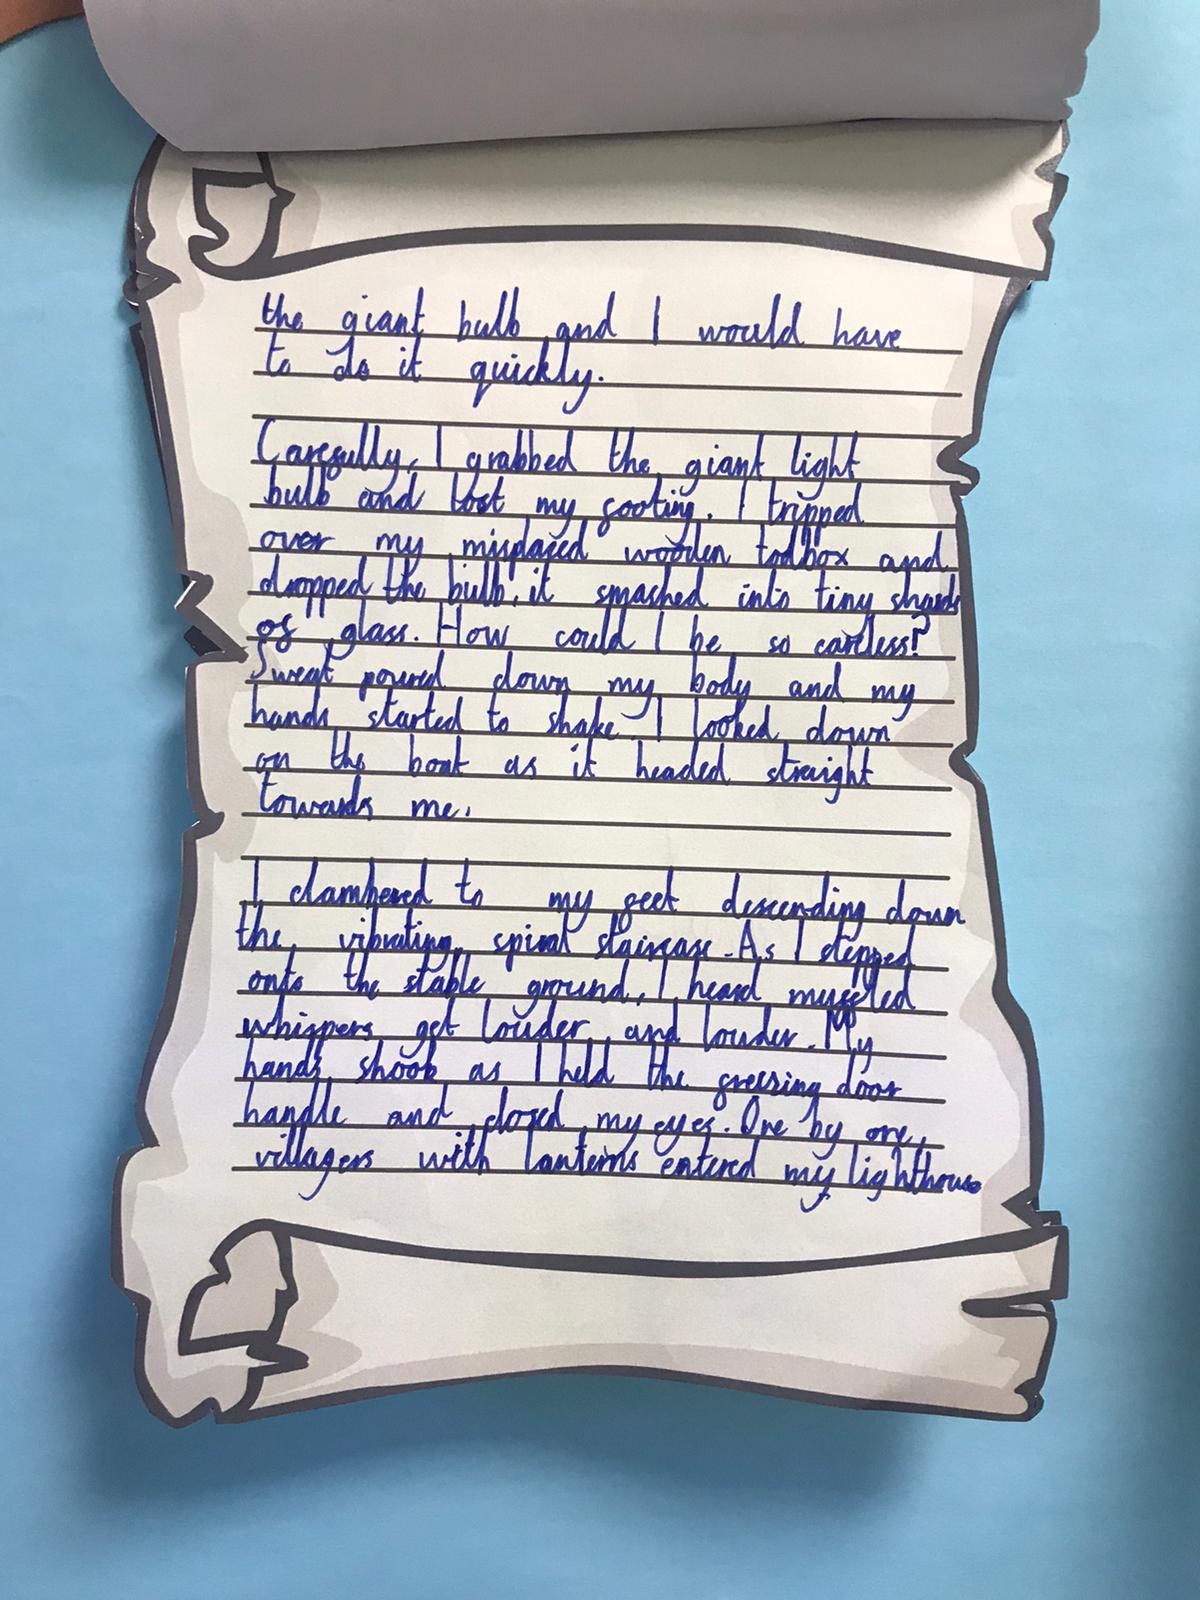 the giant bulb and I would have
to do it quickly.
Carefully, I grabbed the giant light
bulb and lost my footing. I tripped
over my misplaced wooden toolbox and
dropped the bulb, it smashed into tiny shards
of glass. How could I be so careless?
Sweat poured down my body and my
hands started to shake. I looked down
on the boat as it headed straight
towards me.
I clambered to my feet descending down
the vibrating spiral staircase. As I stepped
onto the stable ground, I heard muffled
whispers get louder and louder. My
hands shook as I held the freezing door
handle and closed my eyes. One by one,
villagers with lanterns entered my lighthouse